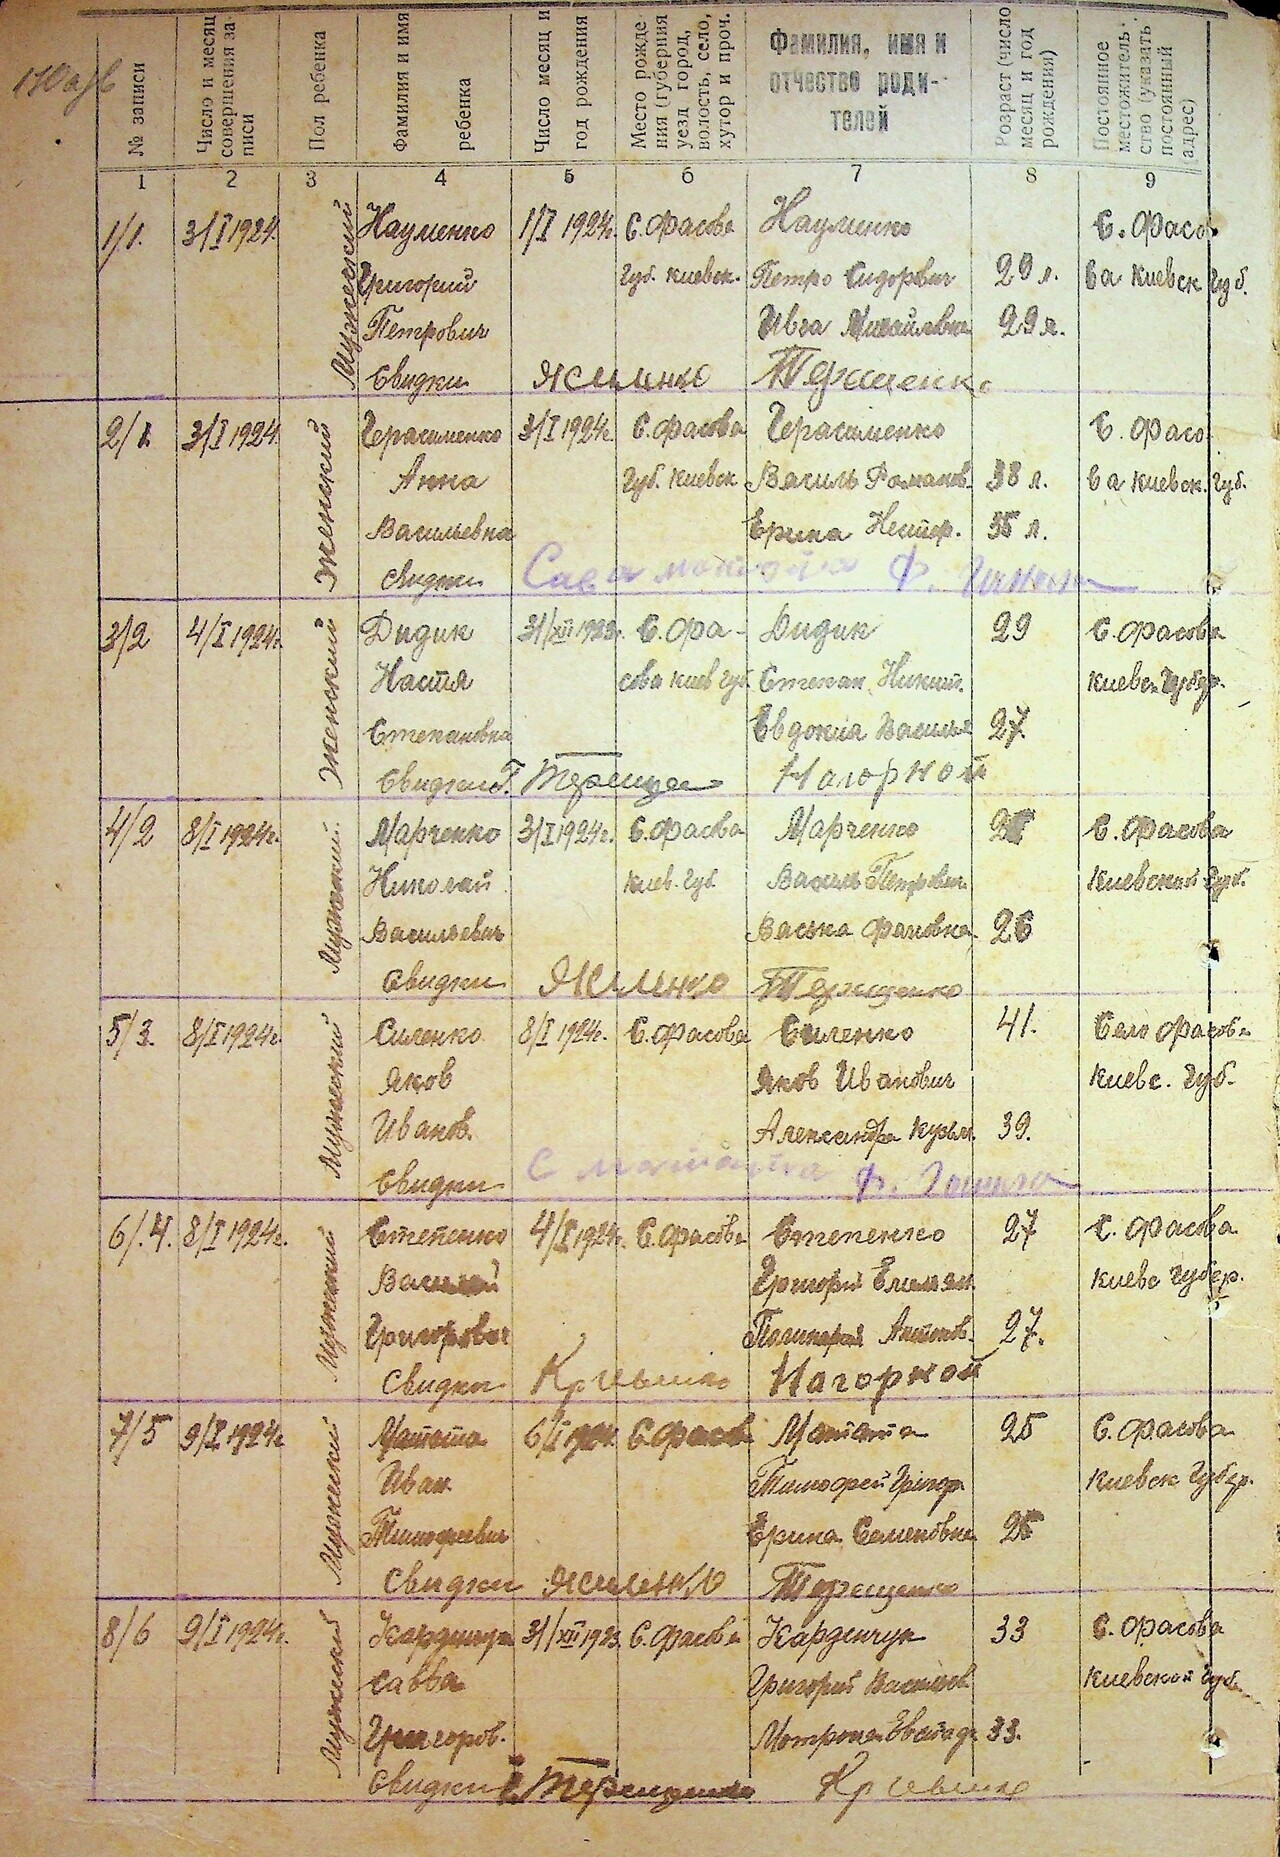 № записи
Число и месяц совершения записи
Пол ребенка
Фамилия и имя ребенка
Число месяц и год рождения
Место рождения (губерния уезд город, волость, село, хутор и проч.
Фамилия, имя и отчество родителей
Возраст (число месяц и год рождения)
Постоянное местожительство (указать постоянный адрес)
1 2 3 4 5 6 7 8 9
1/1. 3/I 1924. Мужеский Науменко 1/I 1924г. С. Фасова Науменко С. Фасо
Григорий Губ. Киевск. Петро Сидорович 29 л. ва Киевск Губ.
Петрович Ивга Михайловна 29 л.
Свидки Терещенко
2/1. 3/I 1924. Женский Герасименко 3/I 1924г. С. Фасова Герасименко С. Фасо
Анна Губ. Киевск Василь Романов. 38 л. ва Киевск. Губ.
Васильевна Ерина Нестер. 35 л.
Свидки Сава Маташа Ф.
3/2 4/I 1924г. Женский Дидик 31/XII 1923г. С. Фа- Дидик 29 С. Фасова
Настя сова Киев Губ. Степан Никит. Киевск Губер.
Степановна Евдокия Василье 27.
Свидки Г. Терещен Нагорной
4/2 8/I 1924г. Мужеский. Марченко 3/I 1924г. С. Фасова Марченко С. Фасова
Николай Киев. Губ. Василь Петрович Киевской Губ.
Васильевич Васька 26
Свидки Терещенко
5/3. 8/I 1924г. Мужеский Силенко 8/I 1924г. С. Фасова Силенко 41. Село Фасова
Яков Яков Иванович Киевс. Губ.
Иванов. Александра Кузьм. 39.
Свидки С Маташа Ф.
6/.4. 8/I 1924г. Мужеский Степенко 4/I 1924г. С. Фасова Степенко 27 С. Фасова
Василий Григорий Емельян. Киевс Губер.
Григорович Антонов. 27.
Свидки Нагорной
7/5 9/I 1924г Мужеский Маташа 6/I 1924. С. Фасова Маташа 25 С. Фасова
Иван Тимофей Григор. Киевск Губер.
Тимофеевич Ерина Семеновна 25
Свидки Терещенко
8/6 9/I 1924г. Мужеский Карденчук 31/XII 1923. С. Фасова Карденчук 33 С. Фасова
Савва Григорий Васильев. Киевской Губ.
Григоров. Мотрона 33.
Свидки Г. Терещенко